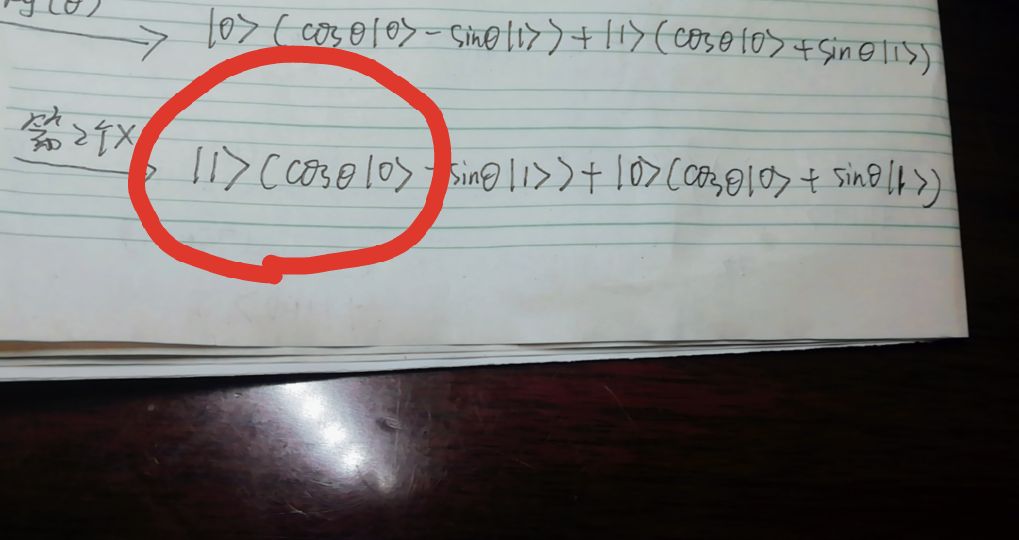 Ry(θ)
→ |0>(cosθ|0>-sinθ|1>)+|1>(cosθ|0>+sinθ|1>)
第2个X
→ |1>(cosθ|0>-sinθ|1>)+|0>(cosθ|0>+sinθ|1>)